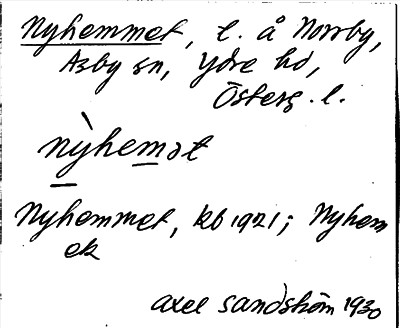 Nyhemmet, l. å Norrby,
Asby sn, Ydre hd,
Österg. l.
nỳhemət
Nyhemmet, kb 1921; Nyhem
ek
Axel Sandström 1930